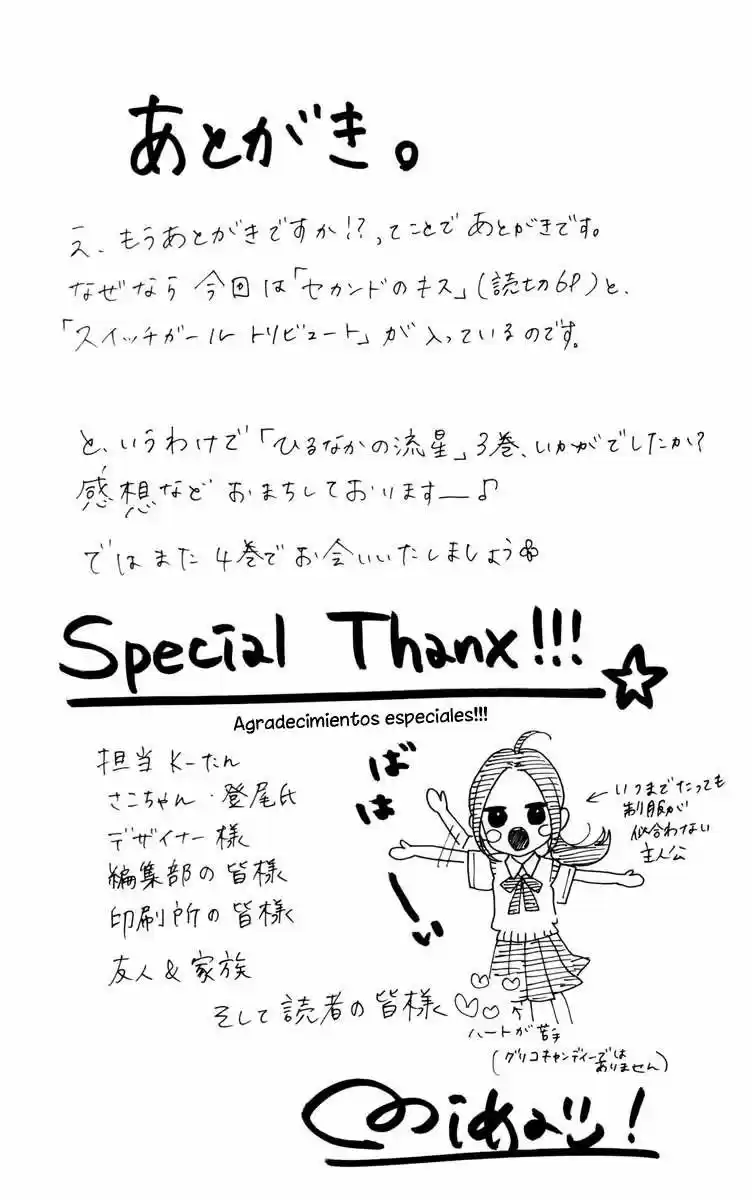 あとがき。
え、もうあとがきですか!?ってことであとがきです。
なぜなら今回は「セカンドのキス」(読切6P)と、
「スイッチガールトリビュート」が入っているのです。
と、いうわけで「ひるなかの流星」3巻、いかがでしたか?
感想などおまちしております—♪
ではまた4巻でお会いいたしましょう
Special Thanx!!!
Agradecimientos especiales!!!
担当 K-たん
さこちゃん・登尾氏
デザイナー様
編集部の皆様
印刷所の皆様
友人&家族
そして読者の皆様
ばはーい
いつまでたっても
制服が
似合わない
主人公
ハートが苦手
(グリコキャンディーでは
ありません)